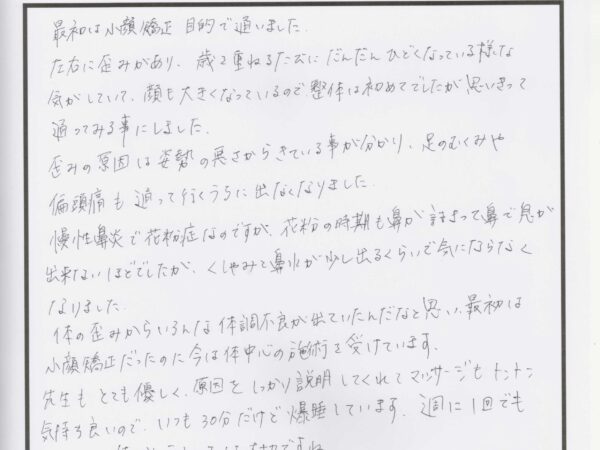 最初は小顔矯正目的で通いました.
左右に歪みがあり、歳を重ねるたびにだんだんひどくなっている様な
気がしていて、顔も大きくなっているので整体は初めてでしたが思いきって
通ってみる事にしました.
歪みの原因は姿勢の悪さからきている事が分かり、足のむくみや
偏頭痛も通って行くうちに出なくなりました.
慢性鼻炎で花粉症なのですが、花粉の時期も鼻が詰まって鼻で息が
出来ないほどでしたが、くしゃみで鼻水が少し出るくらいで気にならなく
なりました.
体の歪みからいろんな体調不良が出ていたんだなと思い、最初は
小顔矯正だったのに今は体中心の施術を受けています.
先生もとても優しく、原因をしっかり説明してくれてマッサージもトントン
気持ち良いので、いつも30分だけど爆睡しています. 週に1回でも